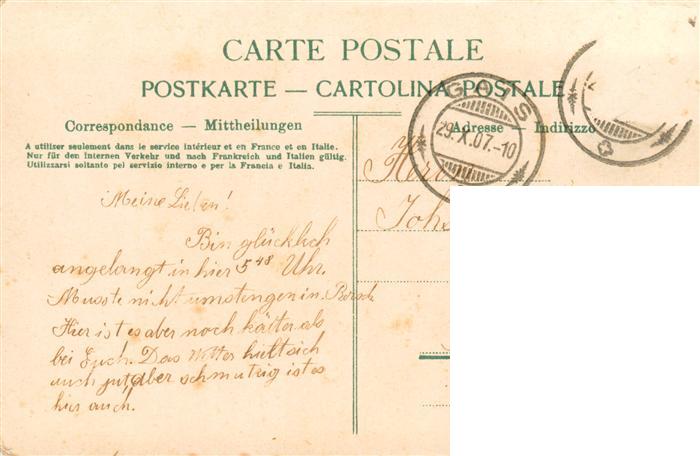 CARTE POSTALE
POSTKARTE — CARTOLINA POSTALE
Correspondance — Mittheilungen
A utiliser seulement dans le service intérieur et en France et en Italie.
Nur für den internen Verkehr und nach Frankreich und Italien gültig.
Utilizzarsi soltanto pel servizio interno e per la Francia e Italia.
Meine Lieben!
Bin glücklich
angelangt in hier 5 48 Uhr.
Musste nicht umsteigen in
Hier ist es aber noch kälter als
bei Euch. Das Wetter hielt sich
auch gut, aber schmutzig ist es
hier auch.
Adresse — Indirizzo
GAIS
29.X.07.-10